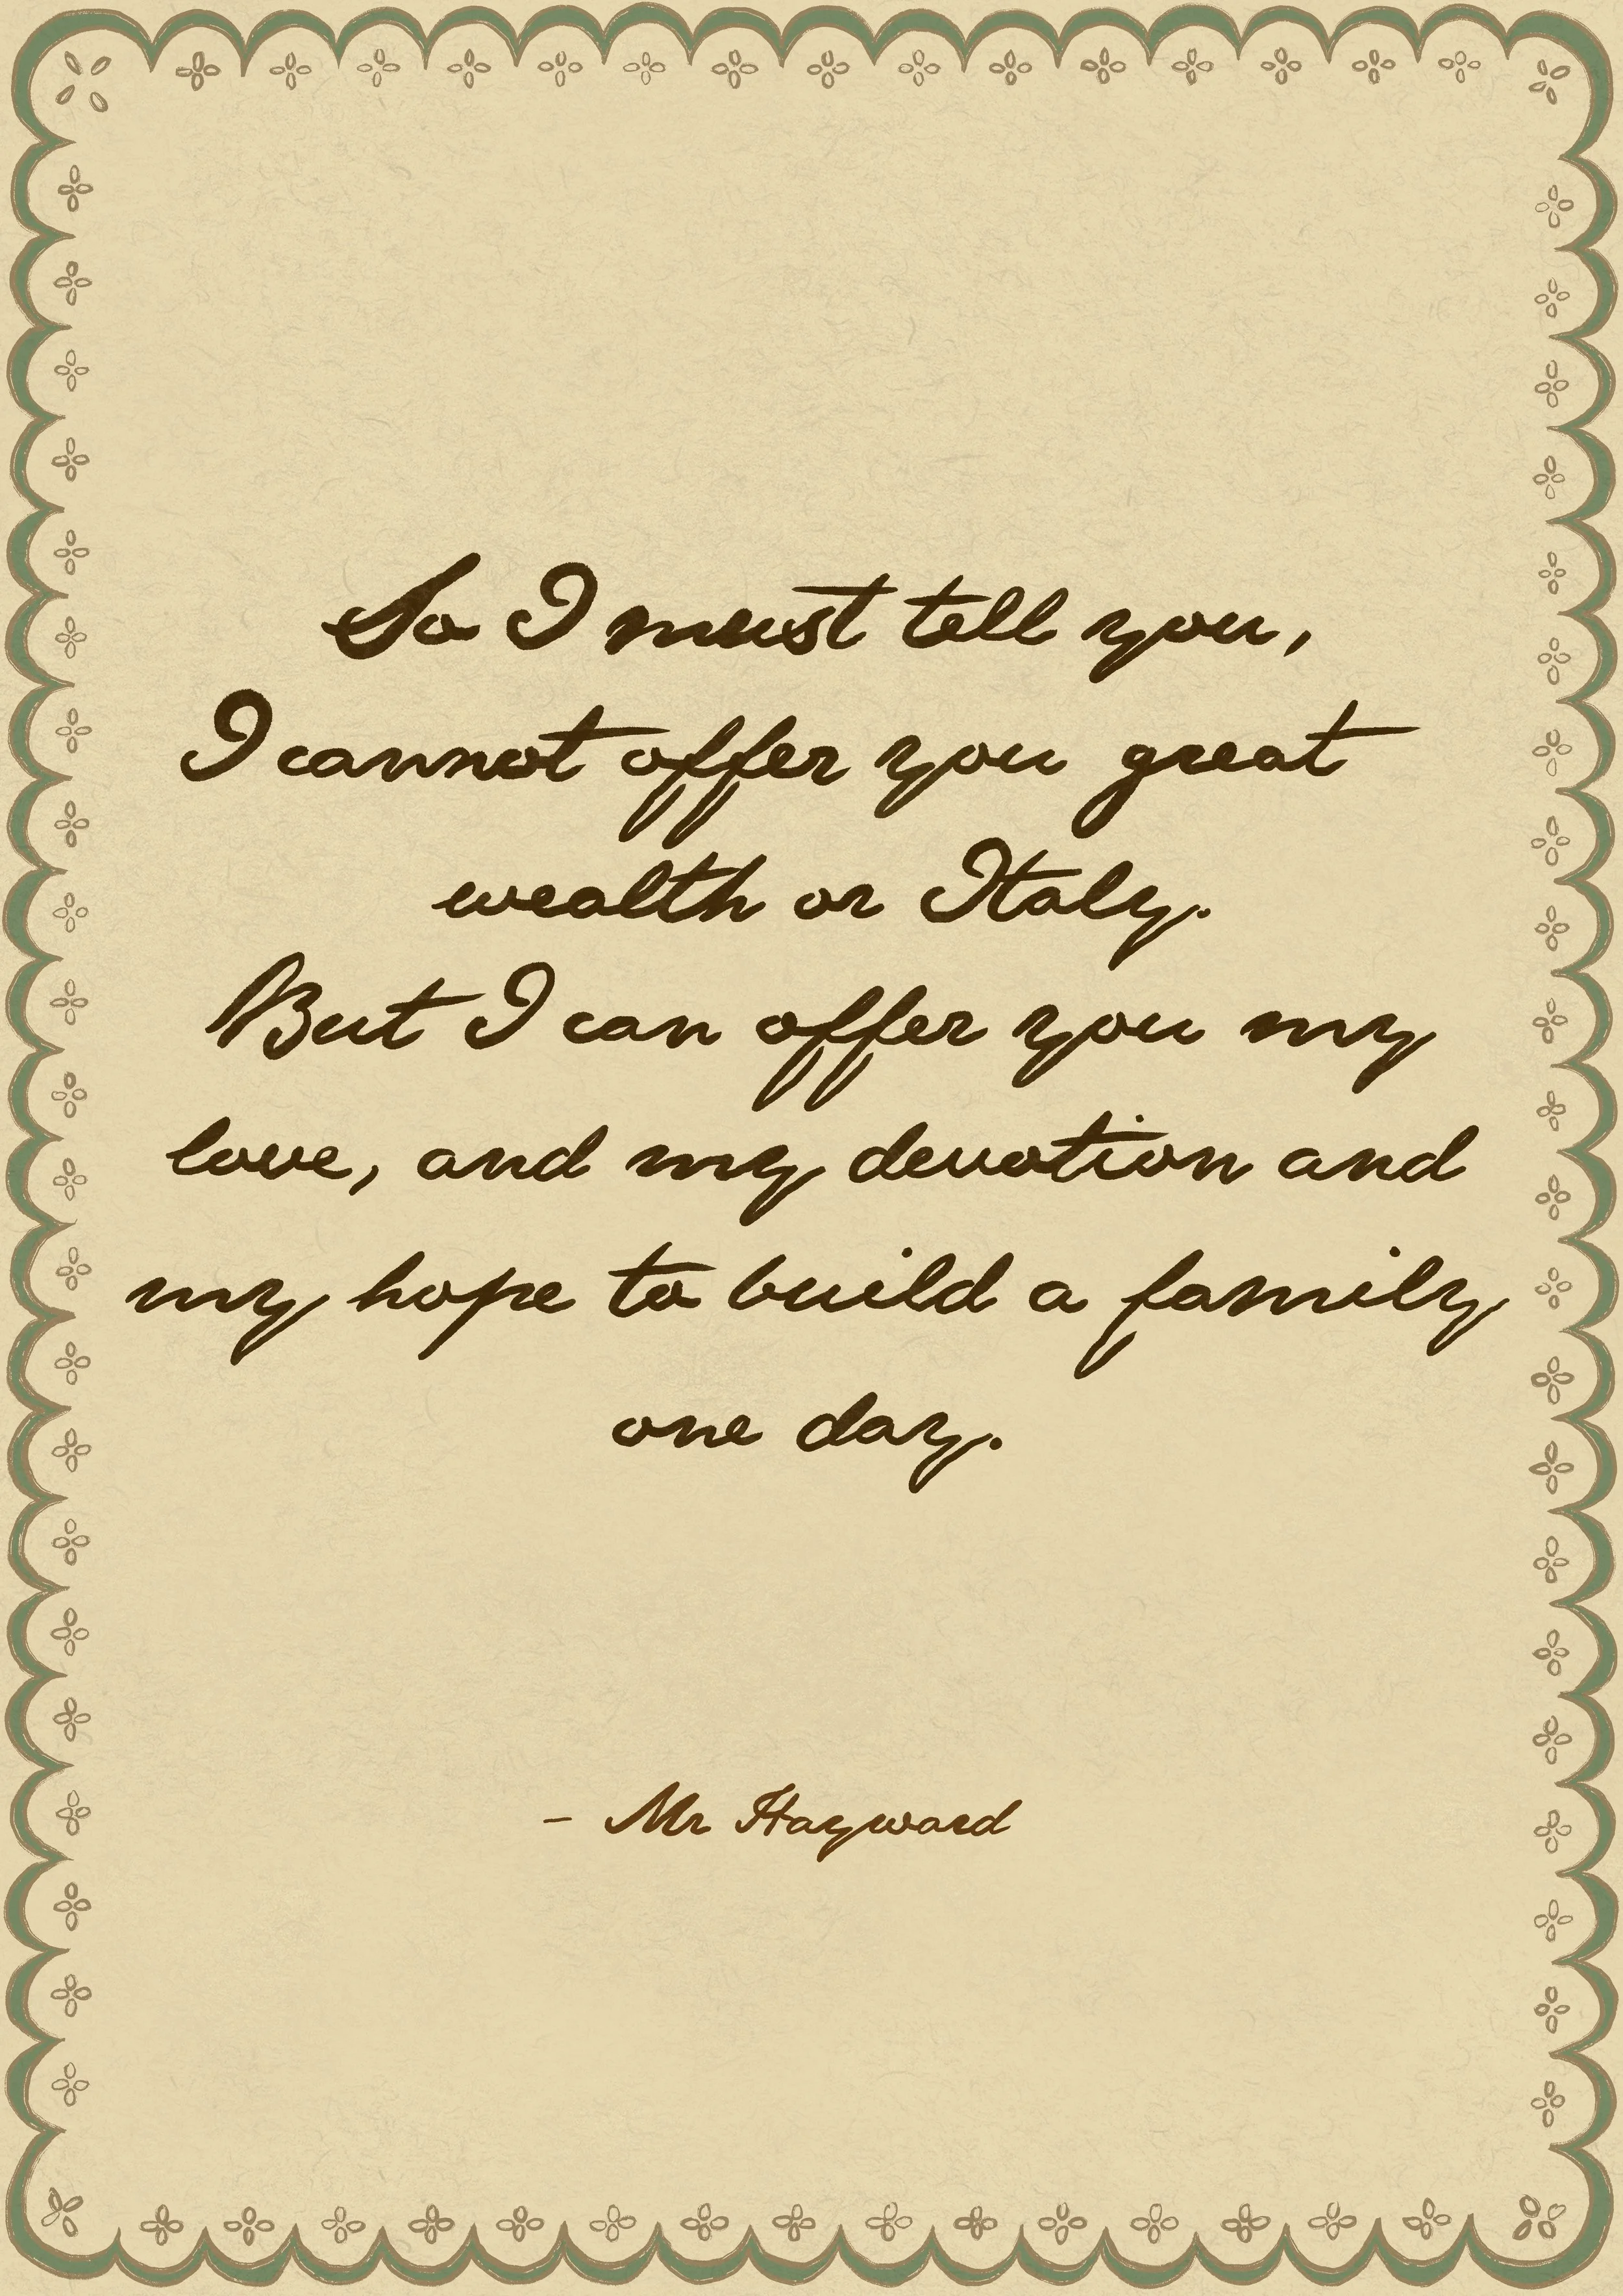 So I must tell you,
I cannot offer you great
wealth or Italy.
But I can offer you my
love, and my devotion and
my hope to build a family
one day.
- Mr Hayward